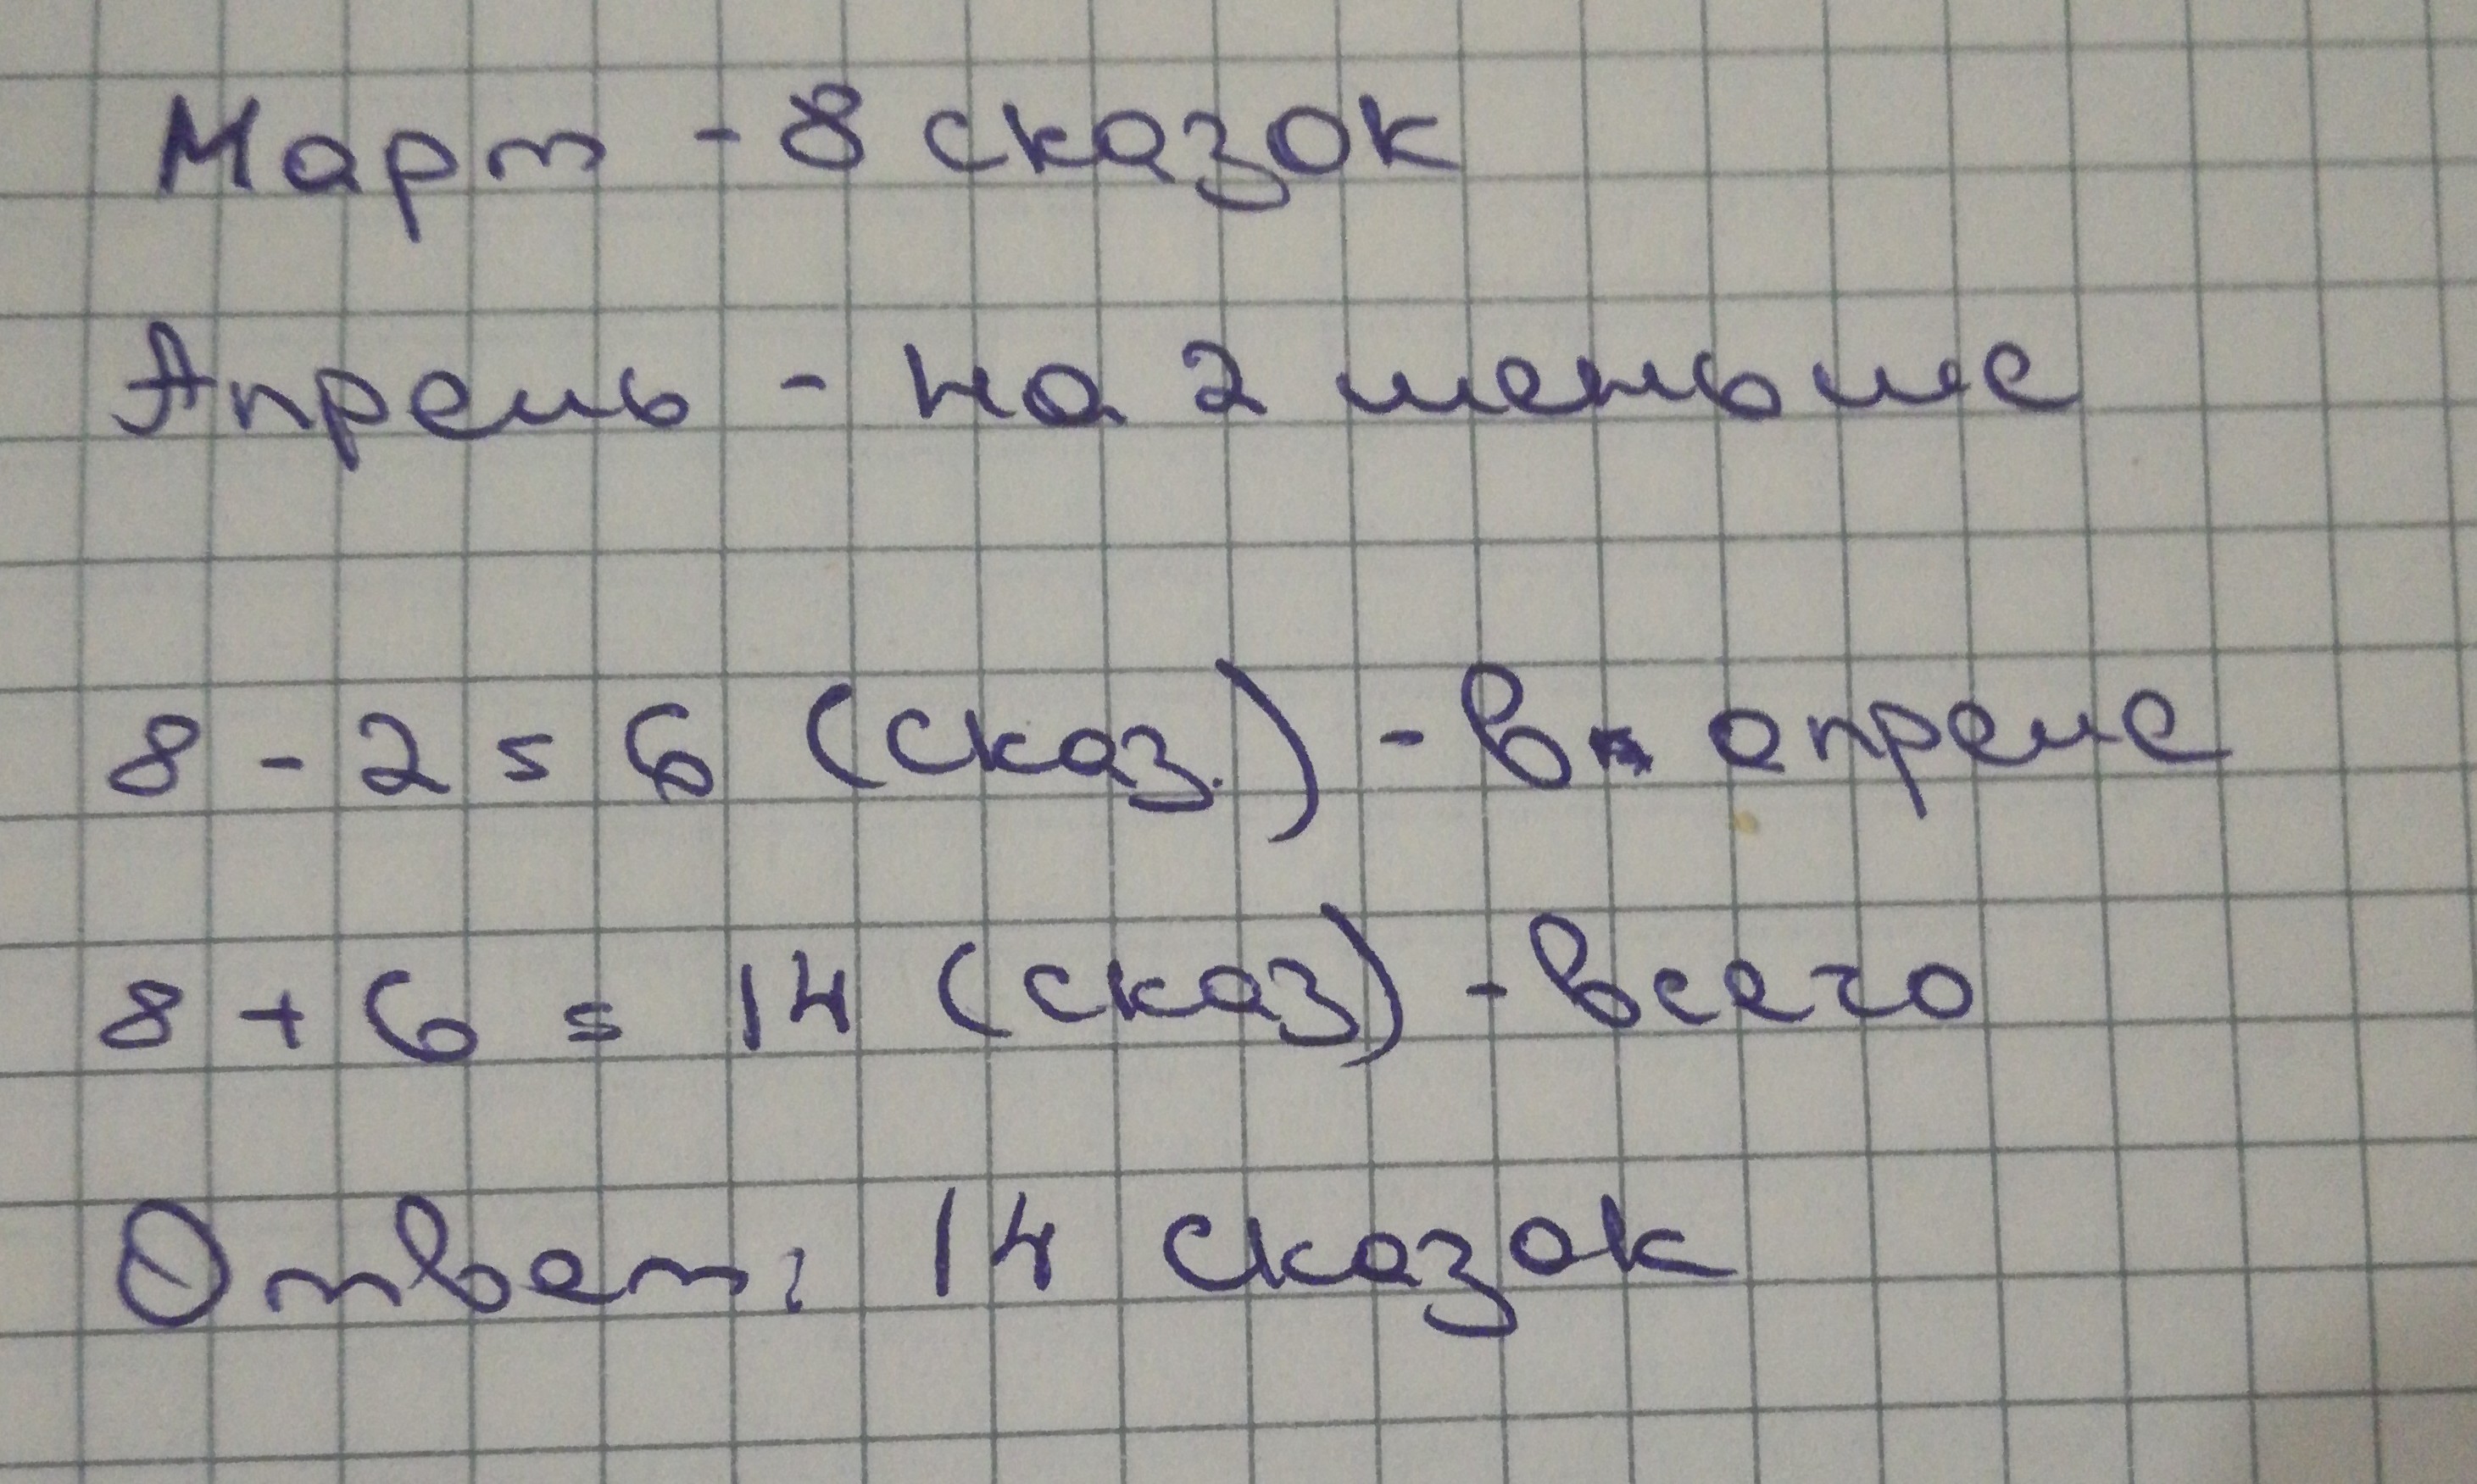 Март - 8 сказок
Апрель - на 2 меньше
8 - 2 = 6 (сказ.) - в апреле
8 + 6 = 14 (сказ) - всего
Ответ: 14 сказок